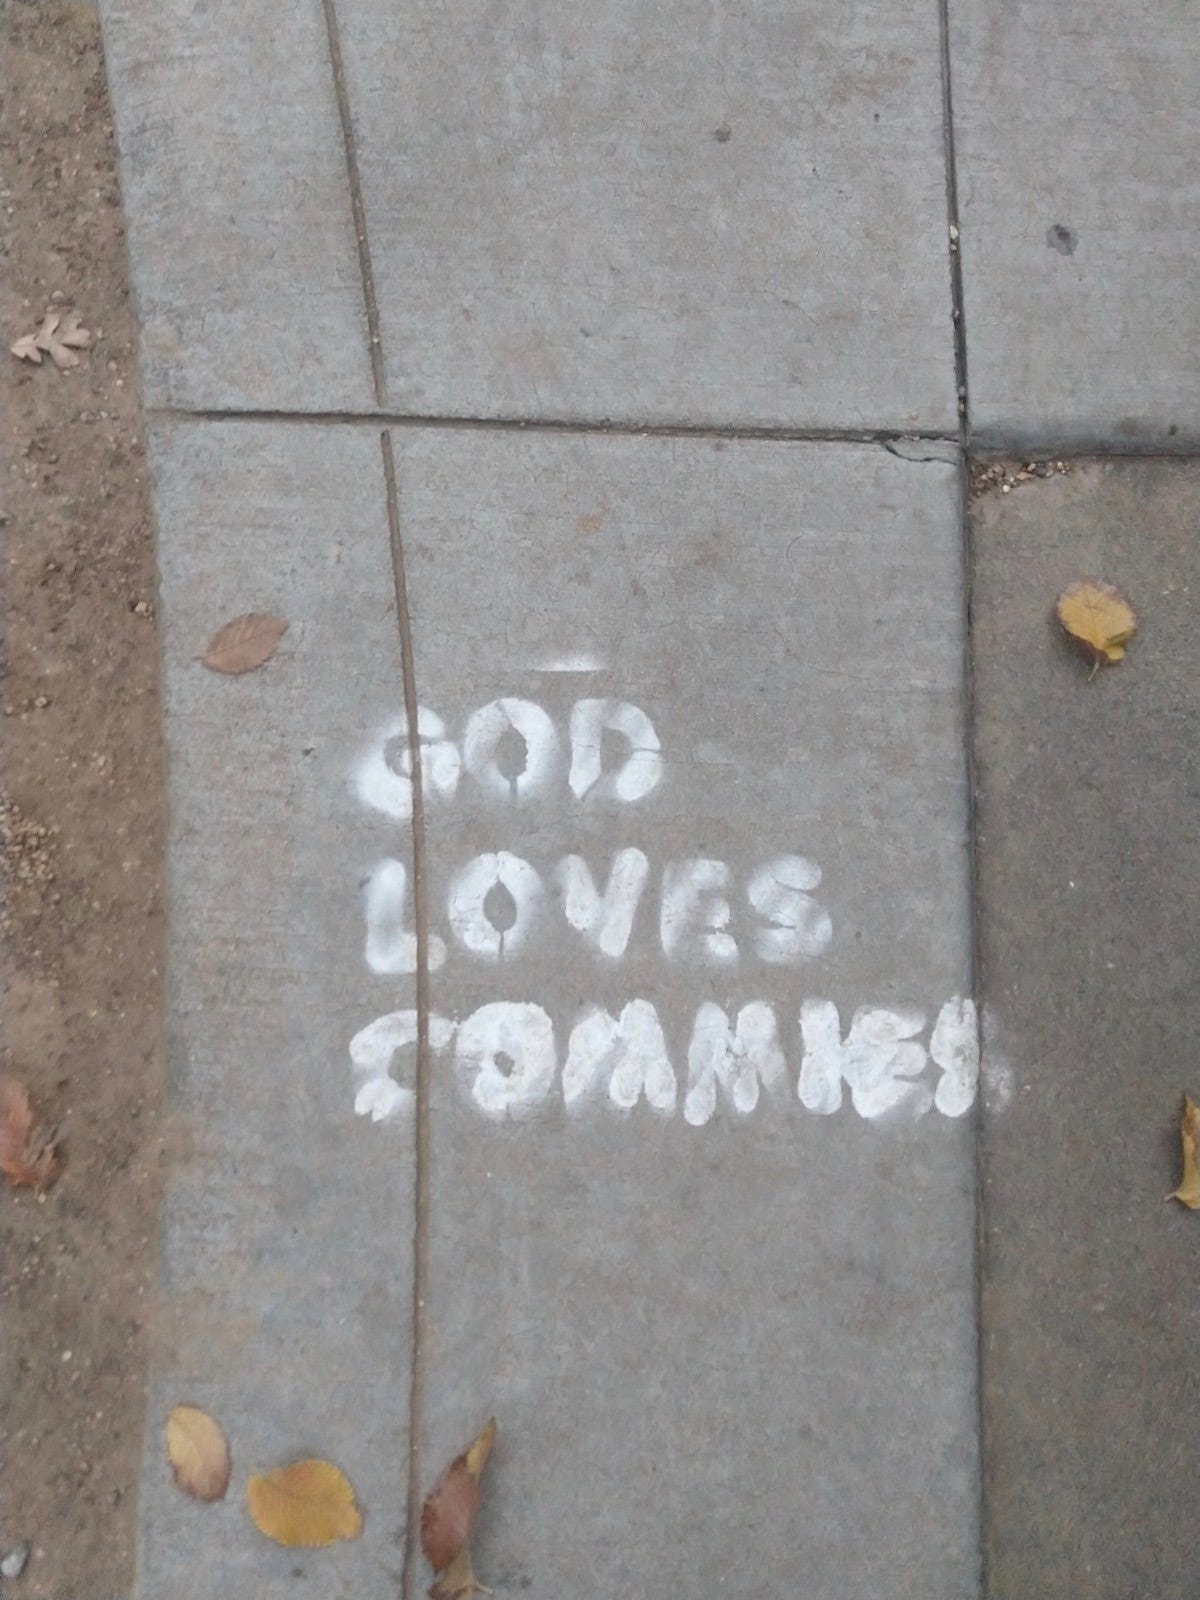 GOD
LOVES
COMMIES